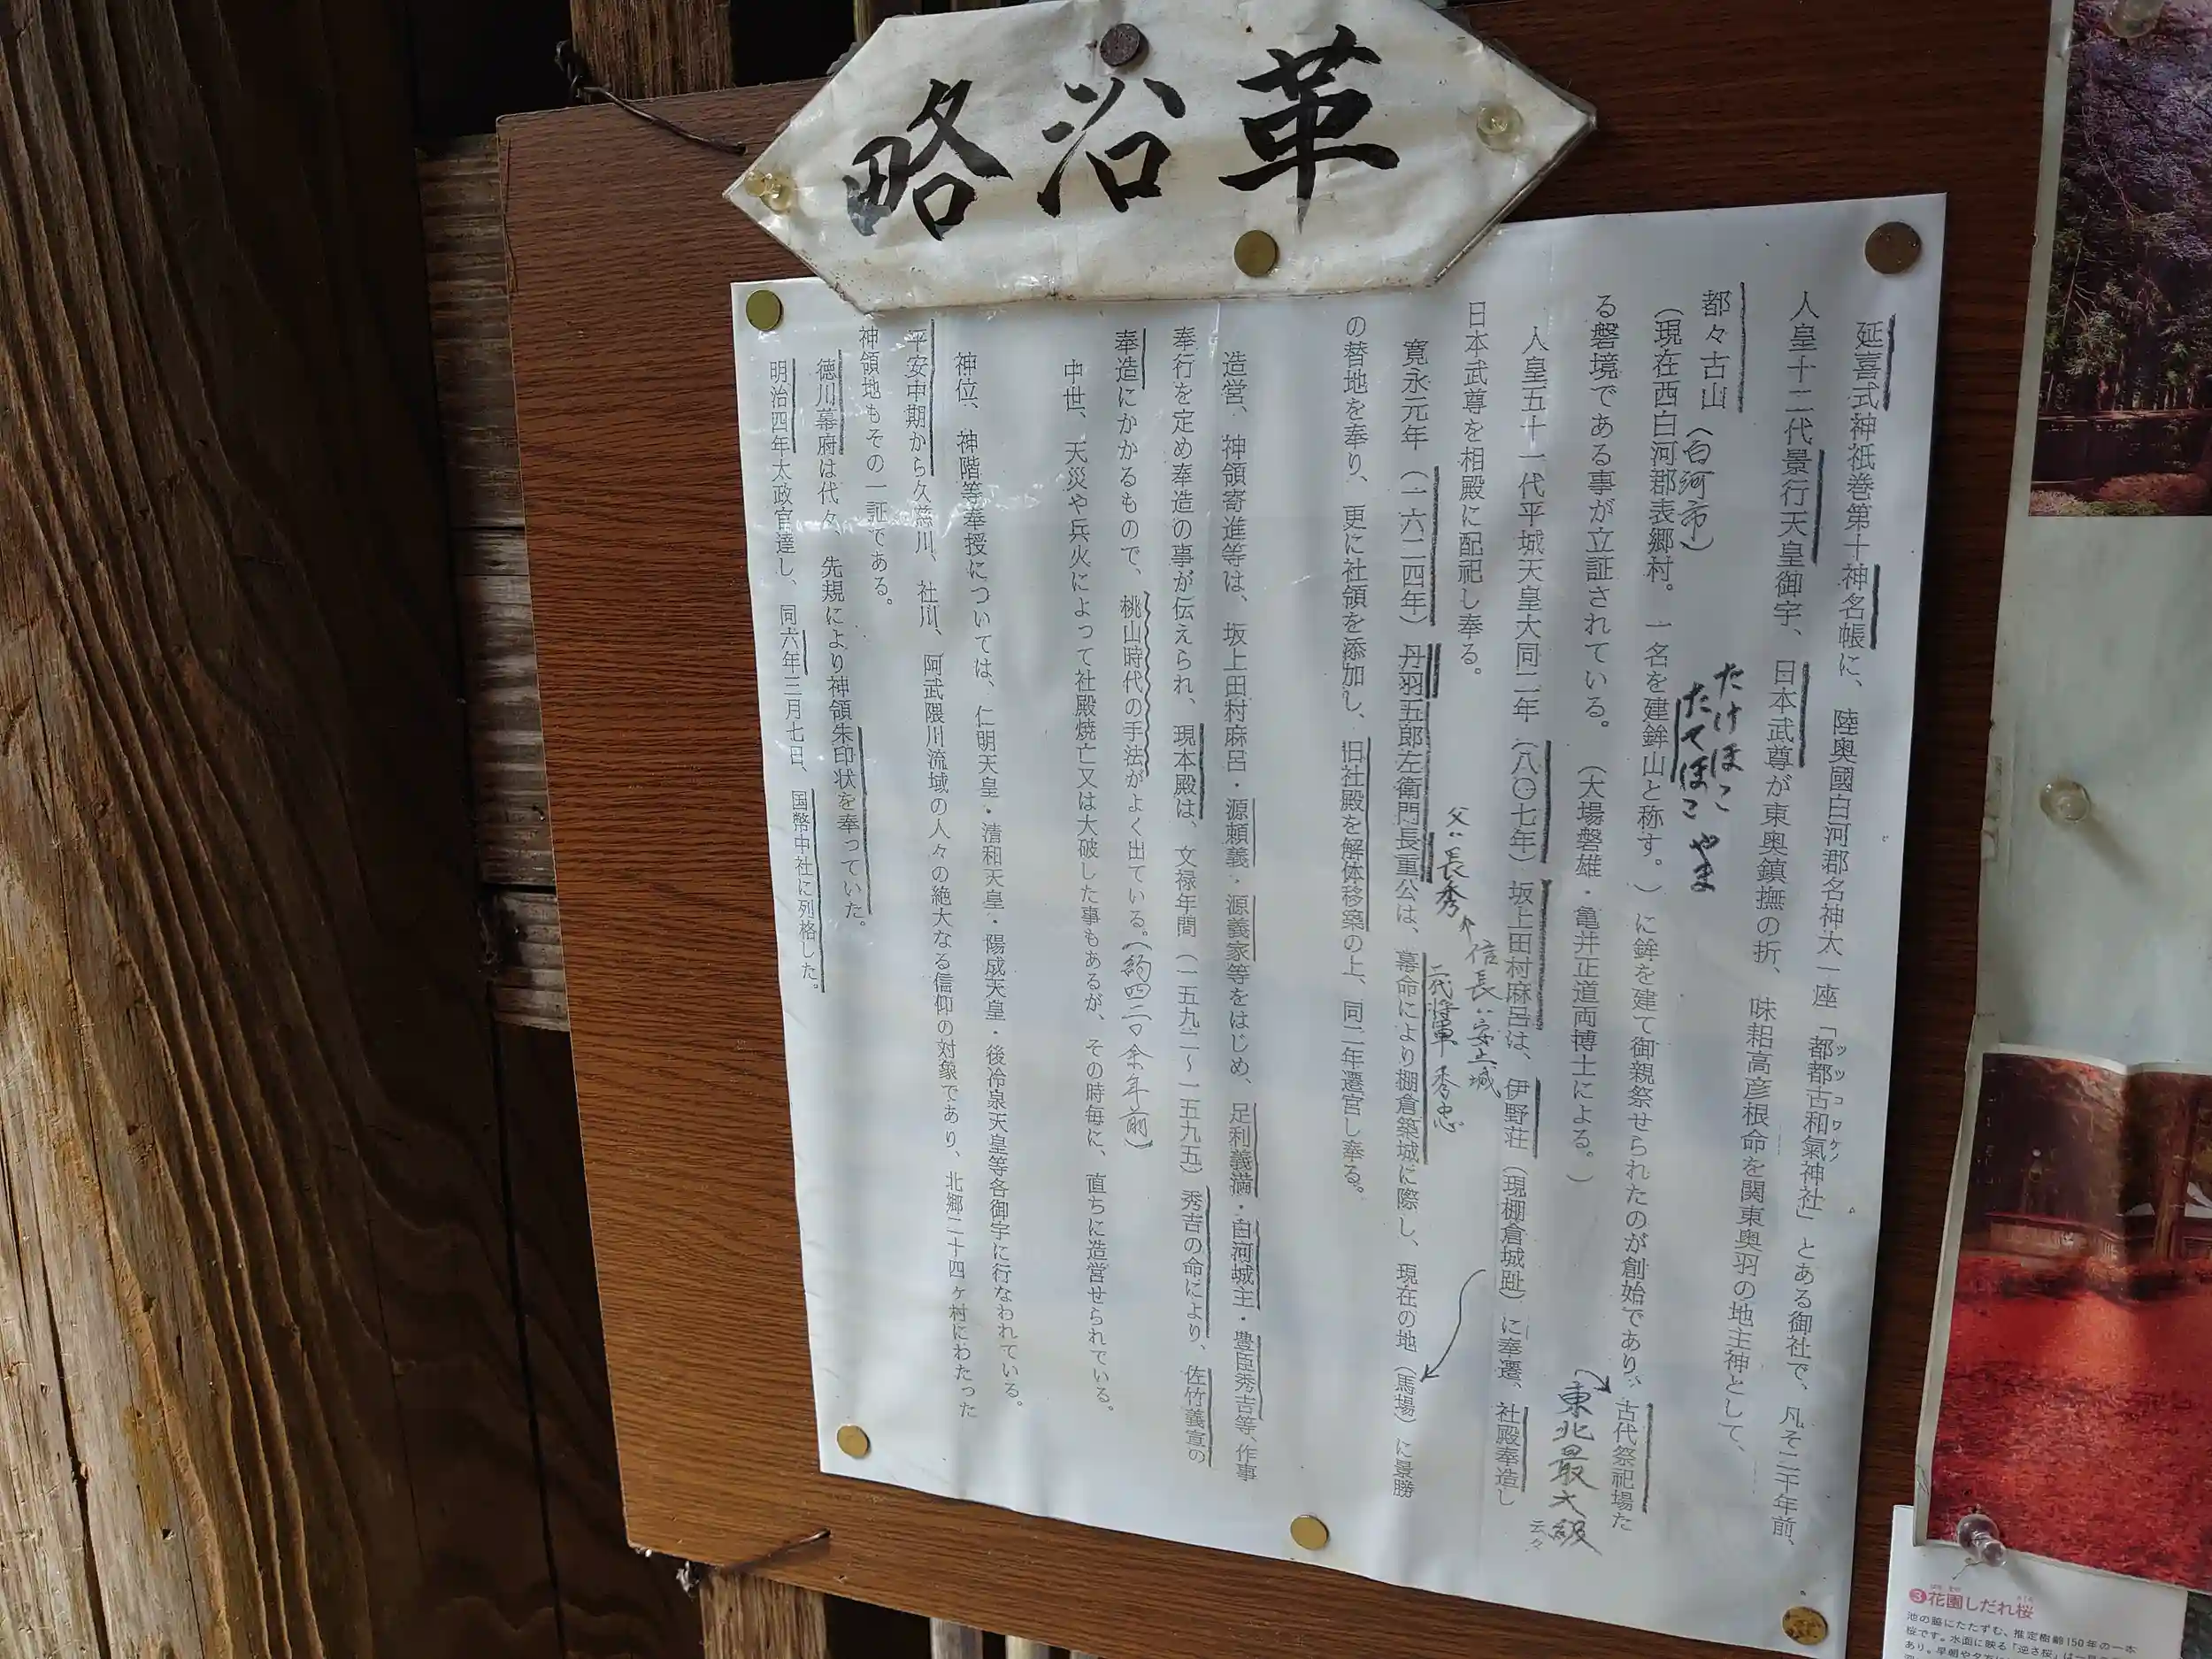 略沿革
延喜式神祇巻第十神名帳に、陸奥國白河郡名神大一座「都都古和氣神社」とある御社で、凡そ二千年前、
ツツコワケノ
人皇十二代景行天皇御宇、日本武尊が東奥鎮撫の折、味耜高彦根命を関東奥羽の地主神として、
都々古山(白河市)
たけほこ
たてほこ やま
(現在西白河郡表郷村。一名を建鉾山と称す。)に鉾を建て御親祭せられたのが創始であり、古代祭祀場た
る磐境である事が立証されている。(大場磐雄・亀井正道両博士による。)
東北最大級
云々
人皇五十一代平城天皇大同二年(八〇七年)坂上田村麻呂は、伊野荘(現棚倉城趾)に奉遷、社殿奉造し
日本武尊を相殿に配祀し奉る。
信長ハ安土城
父ハ長秀
二代将軍 秀忠
寛永元年(一六二四年)丹羽五郎左衛門長重公は、幕命により棚倉築城に際し、現在の地(馬場)に景勝
の替地を奉り、更に社領を添加し、旧社殿を解体移築の上、同二年遷宮し奉る。
造営、神領寄進等は、坂上田村麻呂・源頼義・源義家等をはじめ、足利義満・白河城主・豊臣秀吉等、作事
奉行を定め奉造の事が伝えられ、現本殿は、文禄年間(一五九二～一五九五)秀吉の命により、佐竹義宣の
奉造にかかるもので、桃山時代の手法がよく出ている。(約四二〇余年前)
中世、天災や兵火によって社殿焼亡又は大破した事もあるが、その時毎に、直ちに造営せられている。
神位、神階等奉授については、仁明天皇・清和天皇・陽成天皇・後冷泉天皇等各御宇に行なわれている。
平安中期から久慈川、社川、阿武隈川流域の人々の絶大なる信仰の対象であり、北郷二十四ヶ村にわたった
神領地もその一証である。
徳川幕府は代々、先規により神領朱印状を奉っていた。
明治四年太政官達し、同六年三月七日、国幣中社に列格した。
❸花園しだれ桜
池の脇にたたずむ、推定樹齢150年の一本
桜です。水面に映る「逆さ桜」は
あり。早朝や夕方に